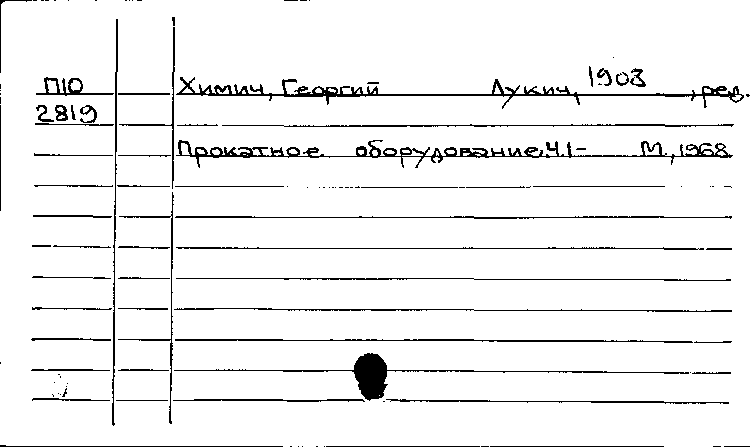 П10 Химич, Георгий Лукич, 1903 , ред.
2819
Прокатное оборудование. Ч.1- М., 1968